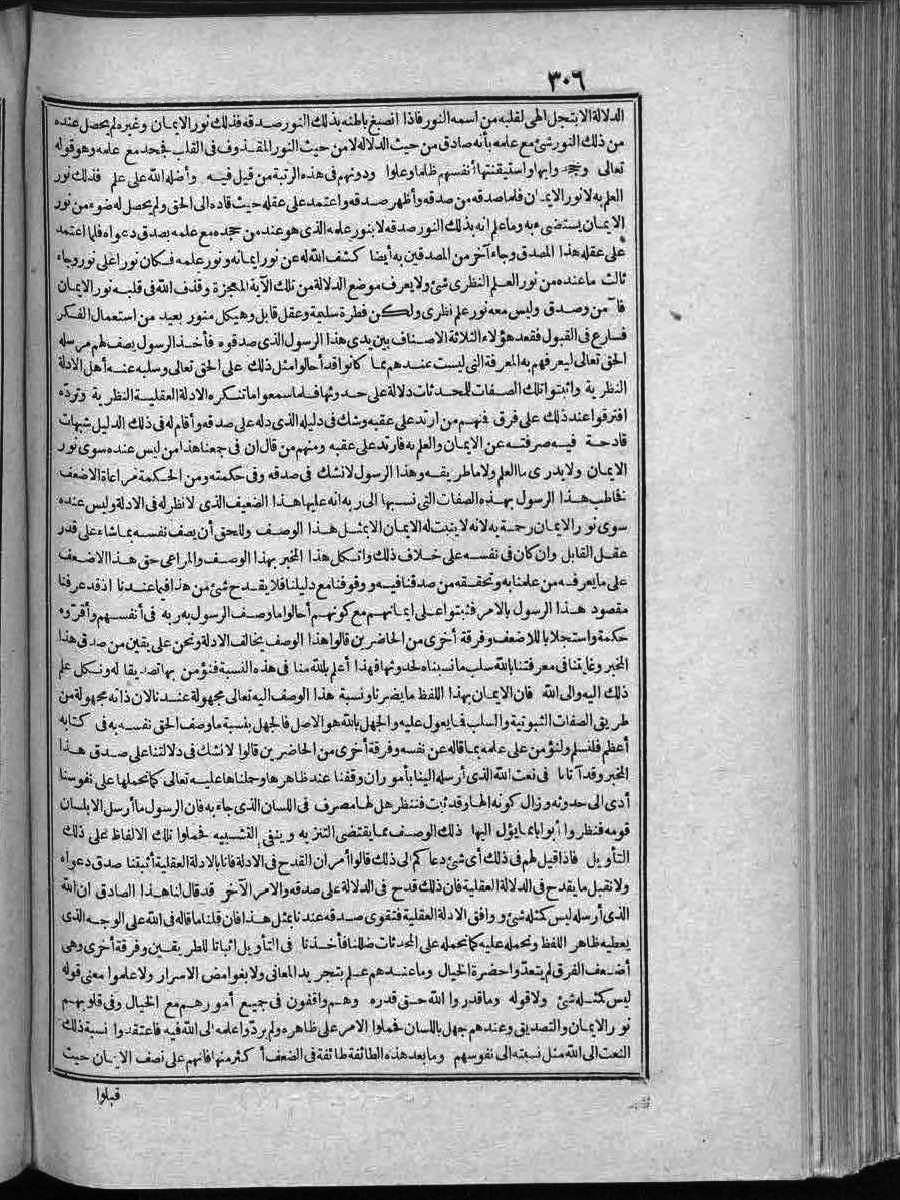 ٣٠٦
الدلالة الا بتجل الهى لقلبه من اسمه النور فاذا انصبغ باطنه بذلك النور صدقه فذلك نور الايمان وغيره لم يحصل عنده
من ذلك النور شئ مع علمه بأنه صادق من حيث الدلالة لا من حيث النور المقذوف فى القلب فجحد مع علمه وهو قوله
تعالى وجحدوا بها واستيقنتها أنفسهم ظلما وعلوا ودونهم فى هذه الرتبة من قيل فيه وأضله الله على علم فذلك نور
العلم به لا نور الايمان فلما صدقه من صدقه وأظهر صدقه واعتمد على عقله حيث قاده الى الحق ولم يحصل له ضوء من نور
الايمان يستضىء به وما علم انه بذلك النور صدقه لا بنور علمه الذى هو عند من جحده مع علمه بصدق دعواه فلما اعتمد
على عقله هذا المصدق وجاء آخر من المصدقين به أيضا كشف الله له عن نور ايمانه ونور علمه فكان نورا على نور وجاء
ثالث ما عنده من نور العلم النظرى شئ ولا يعرف موضع الدلالة من تلك الآية المعجزة وقذف الله فى قلبه نور الايمان
فآمن وصدق وليس معه نور علم نظرى ولكن فطرة سليمة وعقل قابل وهيكل منور بعيد من استعمال الفكر
فسارع فى القبول فقعد هؤلاء الثلاثة الاصناف بين يدى هذا الرسول الذى صدقوه فأخذ الرسول يصف لهم مرسله
الحق تعالى ليعرفهم به المعرفة التى ليست عندهم مما كانوا قد أحالوا مثل ذلك على الحق تعالى وسلبه عنه أهل الادلة
النظرية واثبتوا تلك الصفات للمحدثات دلالة على حدوثها فلما سمعوا ما تنكره الادلة العقلية النظرية وترده
افترقوا عند ذلك على فرق فمنهم من ارتد على عقبه وشك فى دليله الذى دله على صدقه وأقام له فى ذلك الدليل شبهات
قادحة فيه صرفته عن الايمان والعلم به فارتد على عقبه ومنهم من قال ان فى جمعنا هذا من ليس عنده سوى نور
الايمان ولا يدرى ما العلم ولا ما طريقه وهذا الرسول لا نشك فى صدقه وفى حكمته ومن الحكمة مراعاة الاضعف
فخاطب هذا الرسول بهذه الصفات التى نسبها الى ربه انه عليها هذا الضعيف الذى لا نظر له فى الادلة وليس عنده
سوى نور الايمان رحمة به لانه لا يثبت له الايمان الا بمثل هذا الوصف وللحق أن يصف نفسه بما شاء على قدر
عقل القابل وان كان فى نفسه على خلاف ذلك واتكل هذا المخبر بهذا الوصف والمراعى حق هذا الاضعف
على ما يعرفه من علمنا به وتحققه من صدقنا فيه ووقوفنا مع دليلنا فلا يقدح شئ من هذا فيما عندنا اذ قد عرفنا
مقصود هذا الرسول بالامر فثبتوا على ايمانهم مع كونهم أحالوا ما وصف الرسول به ربه فى أنفسهم وأقروه
حكمة واستجلابا للاضعف وفرقة أخرى من الحاضرين قالوا هذا الوصف يخالف الادلة ونحن على يقين من صدق هذا
المخبر وغايتنا فى معرفتنا بالله سلب ما نسبناه لحدوثها فهذا أعلم بالله منا فى هذه النسبة فنؤمن بها تصديقا له ونكل علم
ذلك اليه والى الله فان الايمان بهذا اللفظ ما يضرنا ونسبة هذا الوصف اليه تعالى مجهولة عندنا لان ذاته مجهولة من
طريق الصفات الثبوتية والسلب فما يعول عليه والجهل بالله هو الاصل فالجهل بنسبة ما وصف الحق نفسه به فى كتابه
أعظم فلنسلم ولنؤمن على علمه بما قاله عن نفسه وفرقة أخرى من الحاضرين قالوا لا نشك فى دلالتنا على صدق هذا
المخبر وقد أتانا فى نعت الله الذى أرسله الينا بأمور ان وقفنا عند ظاهرها وحملناها عليه تعالى كما نحملها على نفوسنا
أدى الى حدوثه وزال كونه الها وقد ثبت فننظر هل لها مصرف فى اللسان الذى جاء به فان الرسول ما أرسل الا بلسان
قومه فنظروا أبوابا مما يؤل اليها ذلك الوصف مما يقتضى التنزيه وينفى التشبيه فحملوا تلك الالفاظ على ذلك
التأويل فاذا قيل لهم فى ذلك أى شئ دعاكم الى ذلك قالوا أمران القدح فى الادلة فانا بالادلة العقلية أثبتنا صدق دعواه
ولا نقبل ما يقدح فى الدلالة العقلية فان ذلك قدح فى الدلالة على صدقه والامر الآخر قد قال لنا هذا الصادق ان الله
الذى أرسله ليس كمثله شئ ووافق الادلة العقلية فتقوى صدقه عندنا بمثل هذا فان قلنا ما قاله فى الله على الوجه الذى
يعطيه ظاهر اللفظ ونحمله عليه كما نحمله على المحدثات ضللنا فأخذنا فى التأويل اثباتا للطريقين وفرقة أخرى وهى
أضعف الفرق لم يتعدوا حضرة الخيال وما عندهم علم بتجريد المعانى ولا بغوامض الاسرار ولا علموا معنى قوله
ليس كمثله شئ ولا قوله وما قدروا الله حق قدره وهم واقفون فى جميع أمورهم مع الخيال وفى قلوبهم
نور الايمان والتصديق وعندهم جهل باللسان فحملوا الامر على ظاهره ولم يردوا علمه الى الله فيه فاعتقدوا نسبة ذلك
النعت الى الله مثل نسبته الى نفوسهم وما بعد هذه الطائفة طائفة فى الضعف أكثر منها فانهم على نصف الايمان حيث
قبلوا